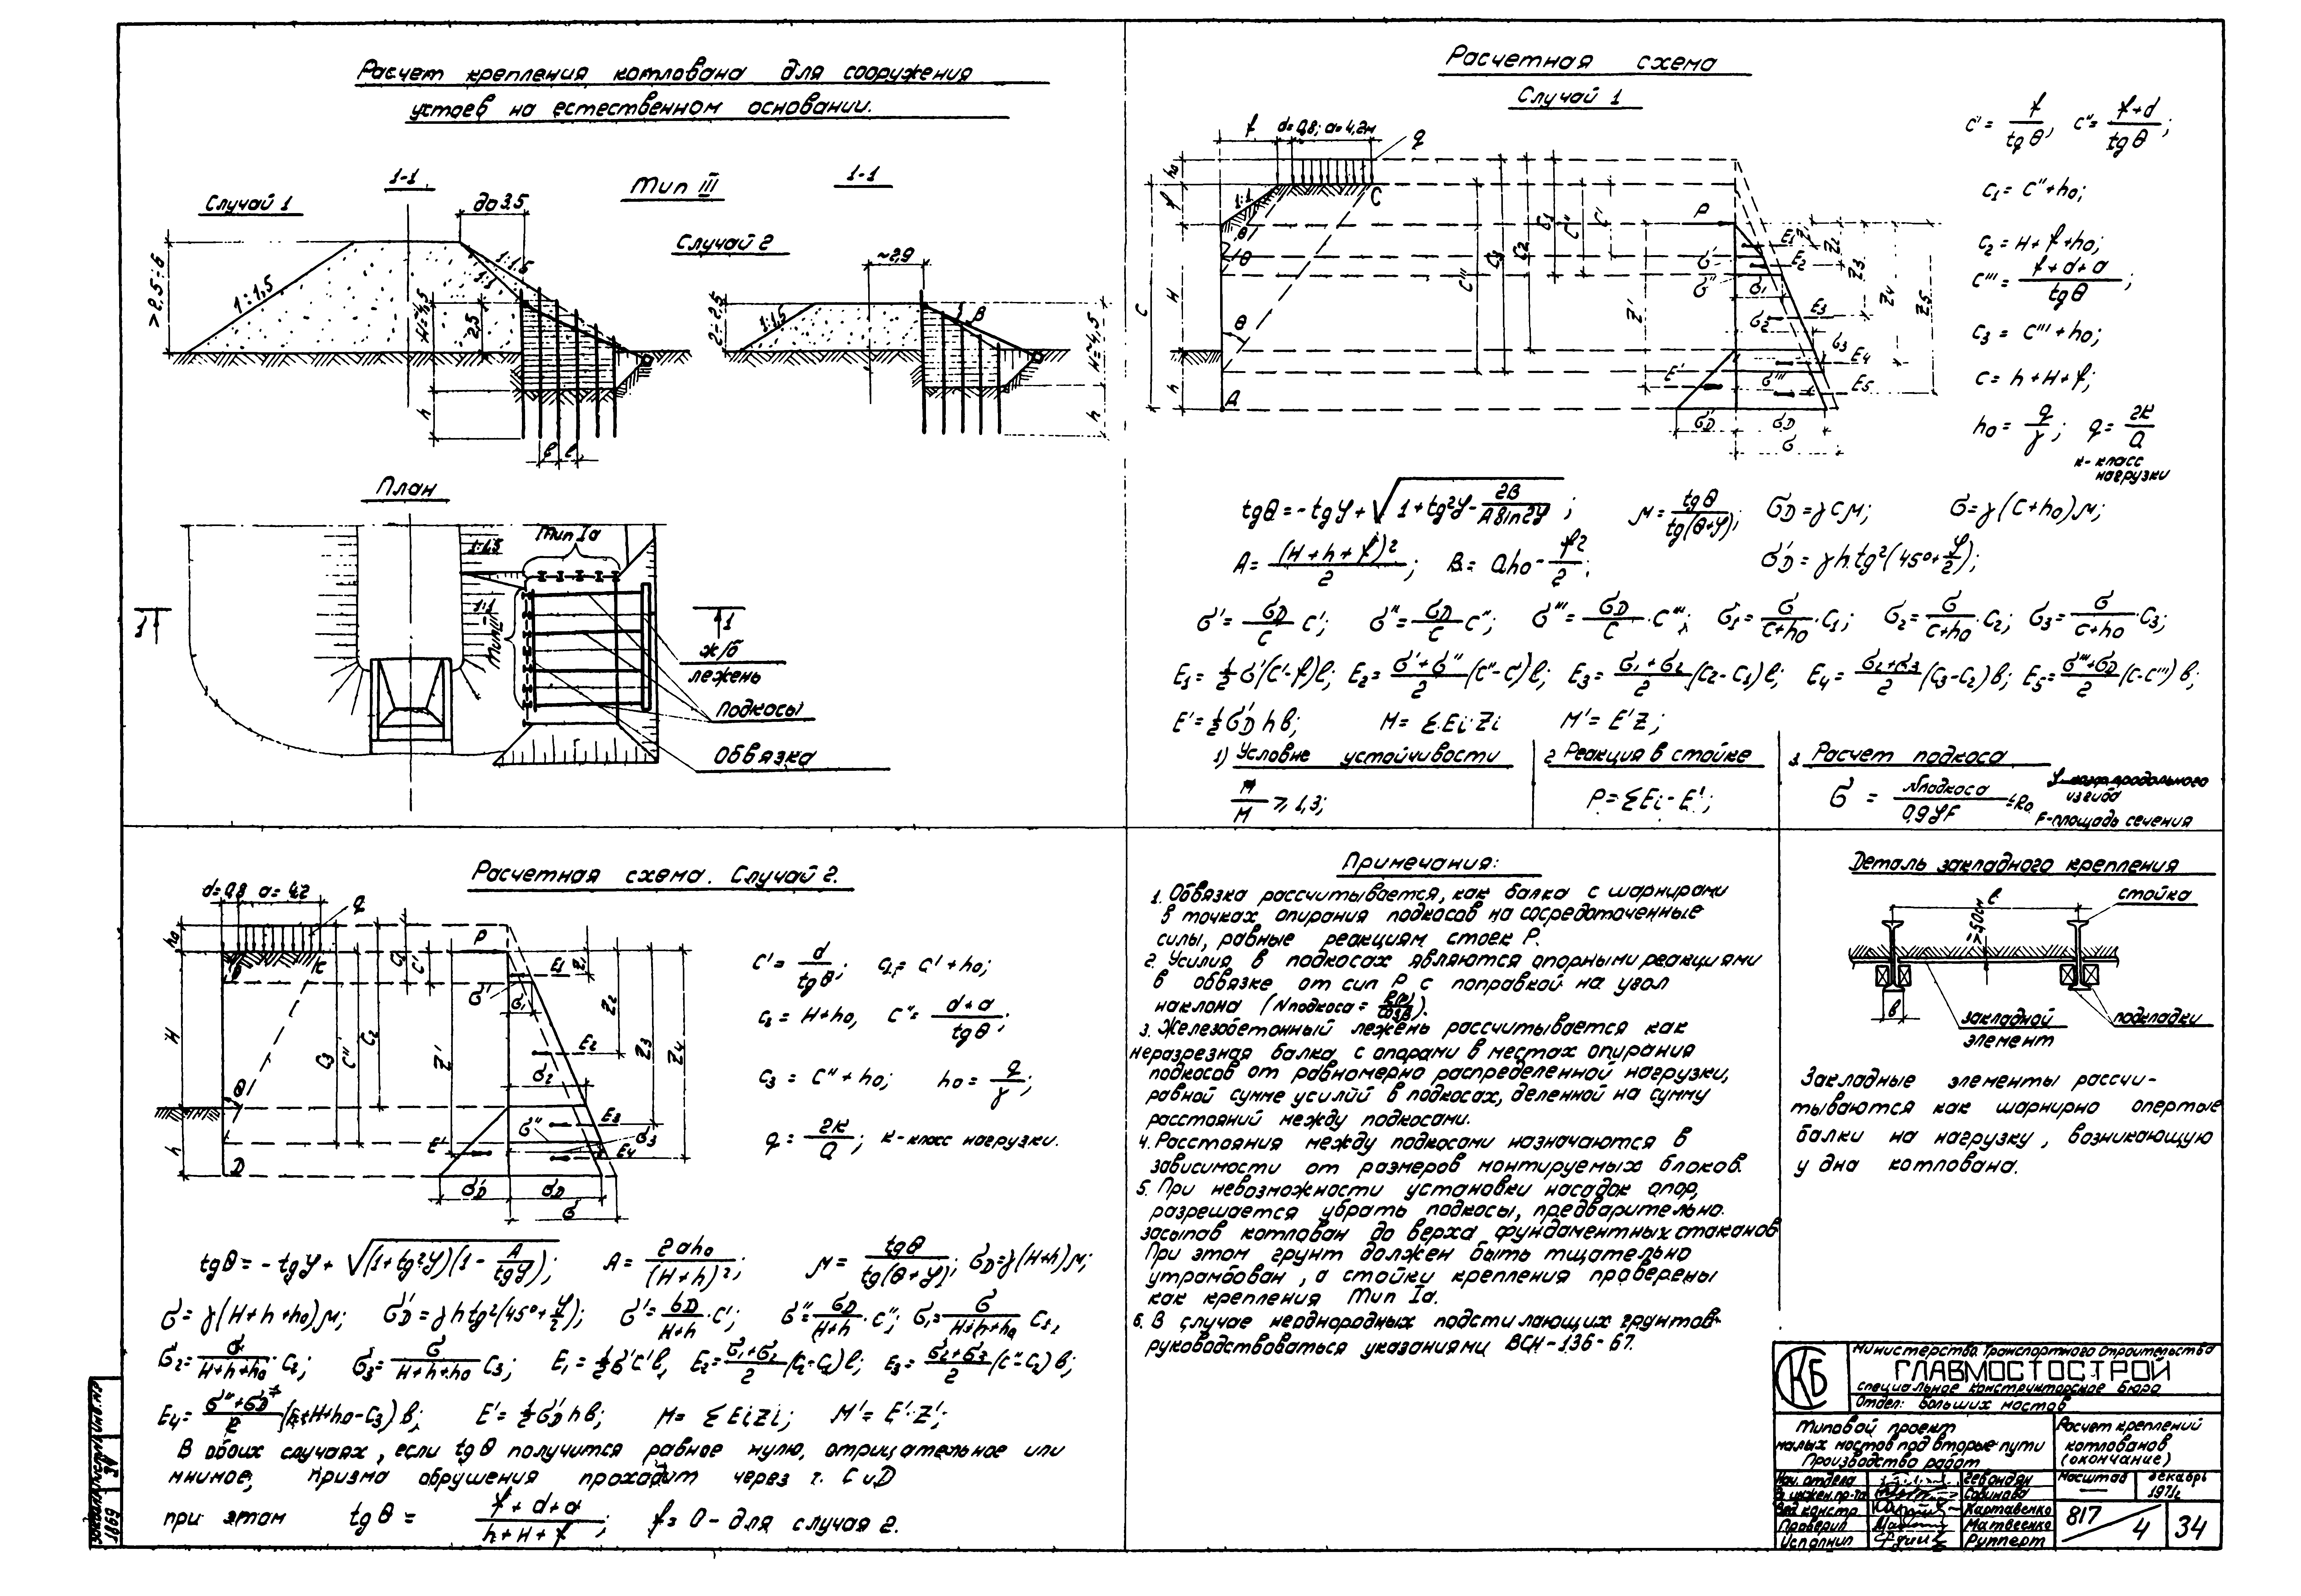 Расчет крепления котлована для сооружения
устоев на естественном основании.
1-1
Тип III
1-1
Случай 1
до 3.5
Случай 2
~2,9
1:1,5
1:1
1:1.5
2,5
1:1.5
β
H=4,5
h
h
План
1:1.5
Тип Iа
1:1
Тип III
1
1
ж/б
лежень
Подкосы
Обвязка
Расчетная схема
Случай 1
f d=0,8; a=4,2м q
h₀
f
1:1
C
P
θ
θ
θ
H
C
h
D
C₁ C" C'
C'" C₃ C₂
E₁
E₂
E₃
E₄
E₅
E'
Z' Z₁ Z₂ Z₃ Z₄ Z₅
σ'
σ"
σ₁
σ₂
σ₃
σ'"
σ'D σD
σ
c' = f/tgθ; c" = f+d/tgθ;
c₁ = c"+h₀;
c₂ = H+f+h₀;
c'" = f+d+a/tgθ;
c₃ = c'"+h₀;
c = h+H+f;
h₀ = q/γ; q = 2K/a
к-класс
нагрузки
tgθ = -tgφ + √1+tg²φ - 2B/A sin2φ; м = tgθ/tg(θ+φ); σD = γcм; σ = γ(c+h₀)м;
A = (H+h+f)²/2; B = ah₀ - f²/2; σ'D = γh.tg²(45°+φ/2);
σ' = σD/c c'; σ" = σD/c c"; σ'" = σD/c · c'"; σ₁ = σ/c+h₀ · c₁; σ₂ = σ/c+h₀ · c₂; σ₃ = σ/c+h₀ · c₃;
E₁ = ½ σ'(c'-f)в; E₂ = σ'+σ"/2 (c"-c')в; E₃ = σ₁+σ₂/2 (c₂-c₁)в; E₄ = σ₂+σ₃/2 (c₃-c₂)в; E₅ = σ'"+σD/2 (c-c'")в;
E' = ½σ'D h в; M = ΣEi·Zi M' = E'Z;
1) Условие устойчивости
M/M ⩾ 1,3;
2 Реакция в стойке
P = ΣEi - E';
3 Расчет подкоса
σ = Nподкоса/0,9φF ≤ R₀
φ-коэф. продольного
изгиба
F-площадь сечения
Расчетная схема. Случай 2.
d=0,8 a=4,2
q
h₀
H
h
θ
D
C₁ C'
C₃ C" C₂
P
E₁
E₂
E₃
E₄
E'
Z' Z₁ Z₂ Z₃ Z₄
σ'
σ₁
σ₂
σ"
σ₃
σ'D σD
σ
c' = d/tgθ; c₁ = c'+h₀;
c₂ = H+h₀, c" = d+a/tgθ;
c₃ = c"+h₀; h₀ = q/γ;
q = 2K/a; к-класс нагрузки.
tgθ = -tgφ + √(1+tg²φ)(1 - A/tgφ); A = 2ah₀/(H+h)²; м = tgθ/tg(θ+φ); σD = γ(H+h)м;
σ = γ(H+h+h₀)м; σ'D = γh tg²(45°+φ/2); σ' = σD/H+h · c'; σ" = σD/H+h · c"; σ₁ = σ/H+h+h₀ c₁,
σ₂ = σ/H+h+h₀ · c₂; σ₃ = σ/H+h+h₀ c₃; E₁ = ½σ'c'в, E₂ = σ₁+σ₂/2 (c₂-c₁)в; E₃ = σ₂+σ₃/2 (c"-c₂)в;
E₄ = σ"+σD/2 (h+H+h₀-c₃)в; E' = ½σ'D h в; M = ΣEiZi; M' = E'·Z';
В обоих случаях, если tgθ получится равное нулю, отрицательное или
мнимое, призма обрушения проходит через т. С и D
при этом tgθ = f+d+a/h+H+f; f = 0-для случая 2.
Примечания:
1. Обвязка рассчитывается, как балка с шарнирами
в точках опирания подкосов на сосредоточенные
силы, равные реакциям стоек P.
2. Усилия в подкосах являются опорными реакциями
в обвязке от сил P с поправкой на угол
наклона (Nподкоса = R(P)/cosβ).
3. Железобетонный лежень рассчитывается как
неразрезная балка с опорами в местах опирания
подкосов от равномерно распределенной нагрузки,
равной сумме усилий в подкосах, деленной на сумму
расстояний между подкосами.
4. Расстояния между подкосами назначаются в
зависимости от размеров монтируемых блоков.
5. При невозможности установки насадок опор,
разрешается убрать подкосы, предварительно.
засыпав котлован до верха фундаментных стаканов
При этом грунт должен быть тщательно
утрамбован, а стойки крепления проверены
как крепления Тип Iа.
6. В случае неоднородных подстилающих грунтов
руководствоваться указаниями ВСН-136-67.
Деталь закладного крепления
ℓ
стойка
⩾5,0см
в
закладной
элемент
подкладки
Закладные элементы рассчи-
тываются как шарнирно опертые
балки на нагрузку, возникающую
у дна котлована.
СКБ
Министерство Транспортного Строительства
ГЛАВМОСТОСТРОЙ
специальное конструкторское бюро
Отдел: больших мостов
Типовой проект
малых мостов под вторые пути
Производство работ
Расчет креплений
котлованов
(окончание)
Нач. отдела Гевондян
Гл. инжен. пр-та
Вед. констр. Хартавенко
Проверил Матвеенко
Исполнил Рупперт
Масштаб
—
декабрь
1971г.
817/4
34